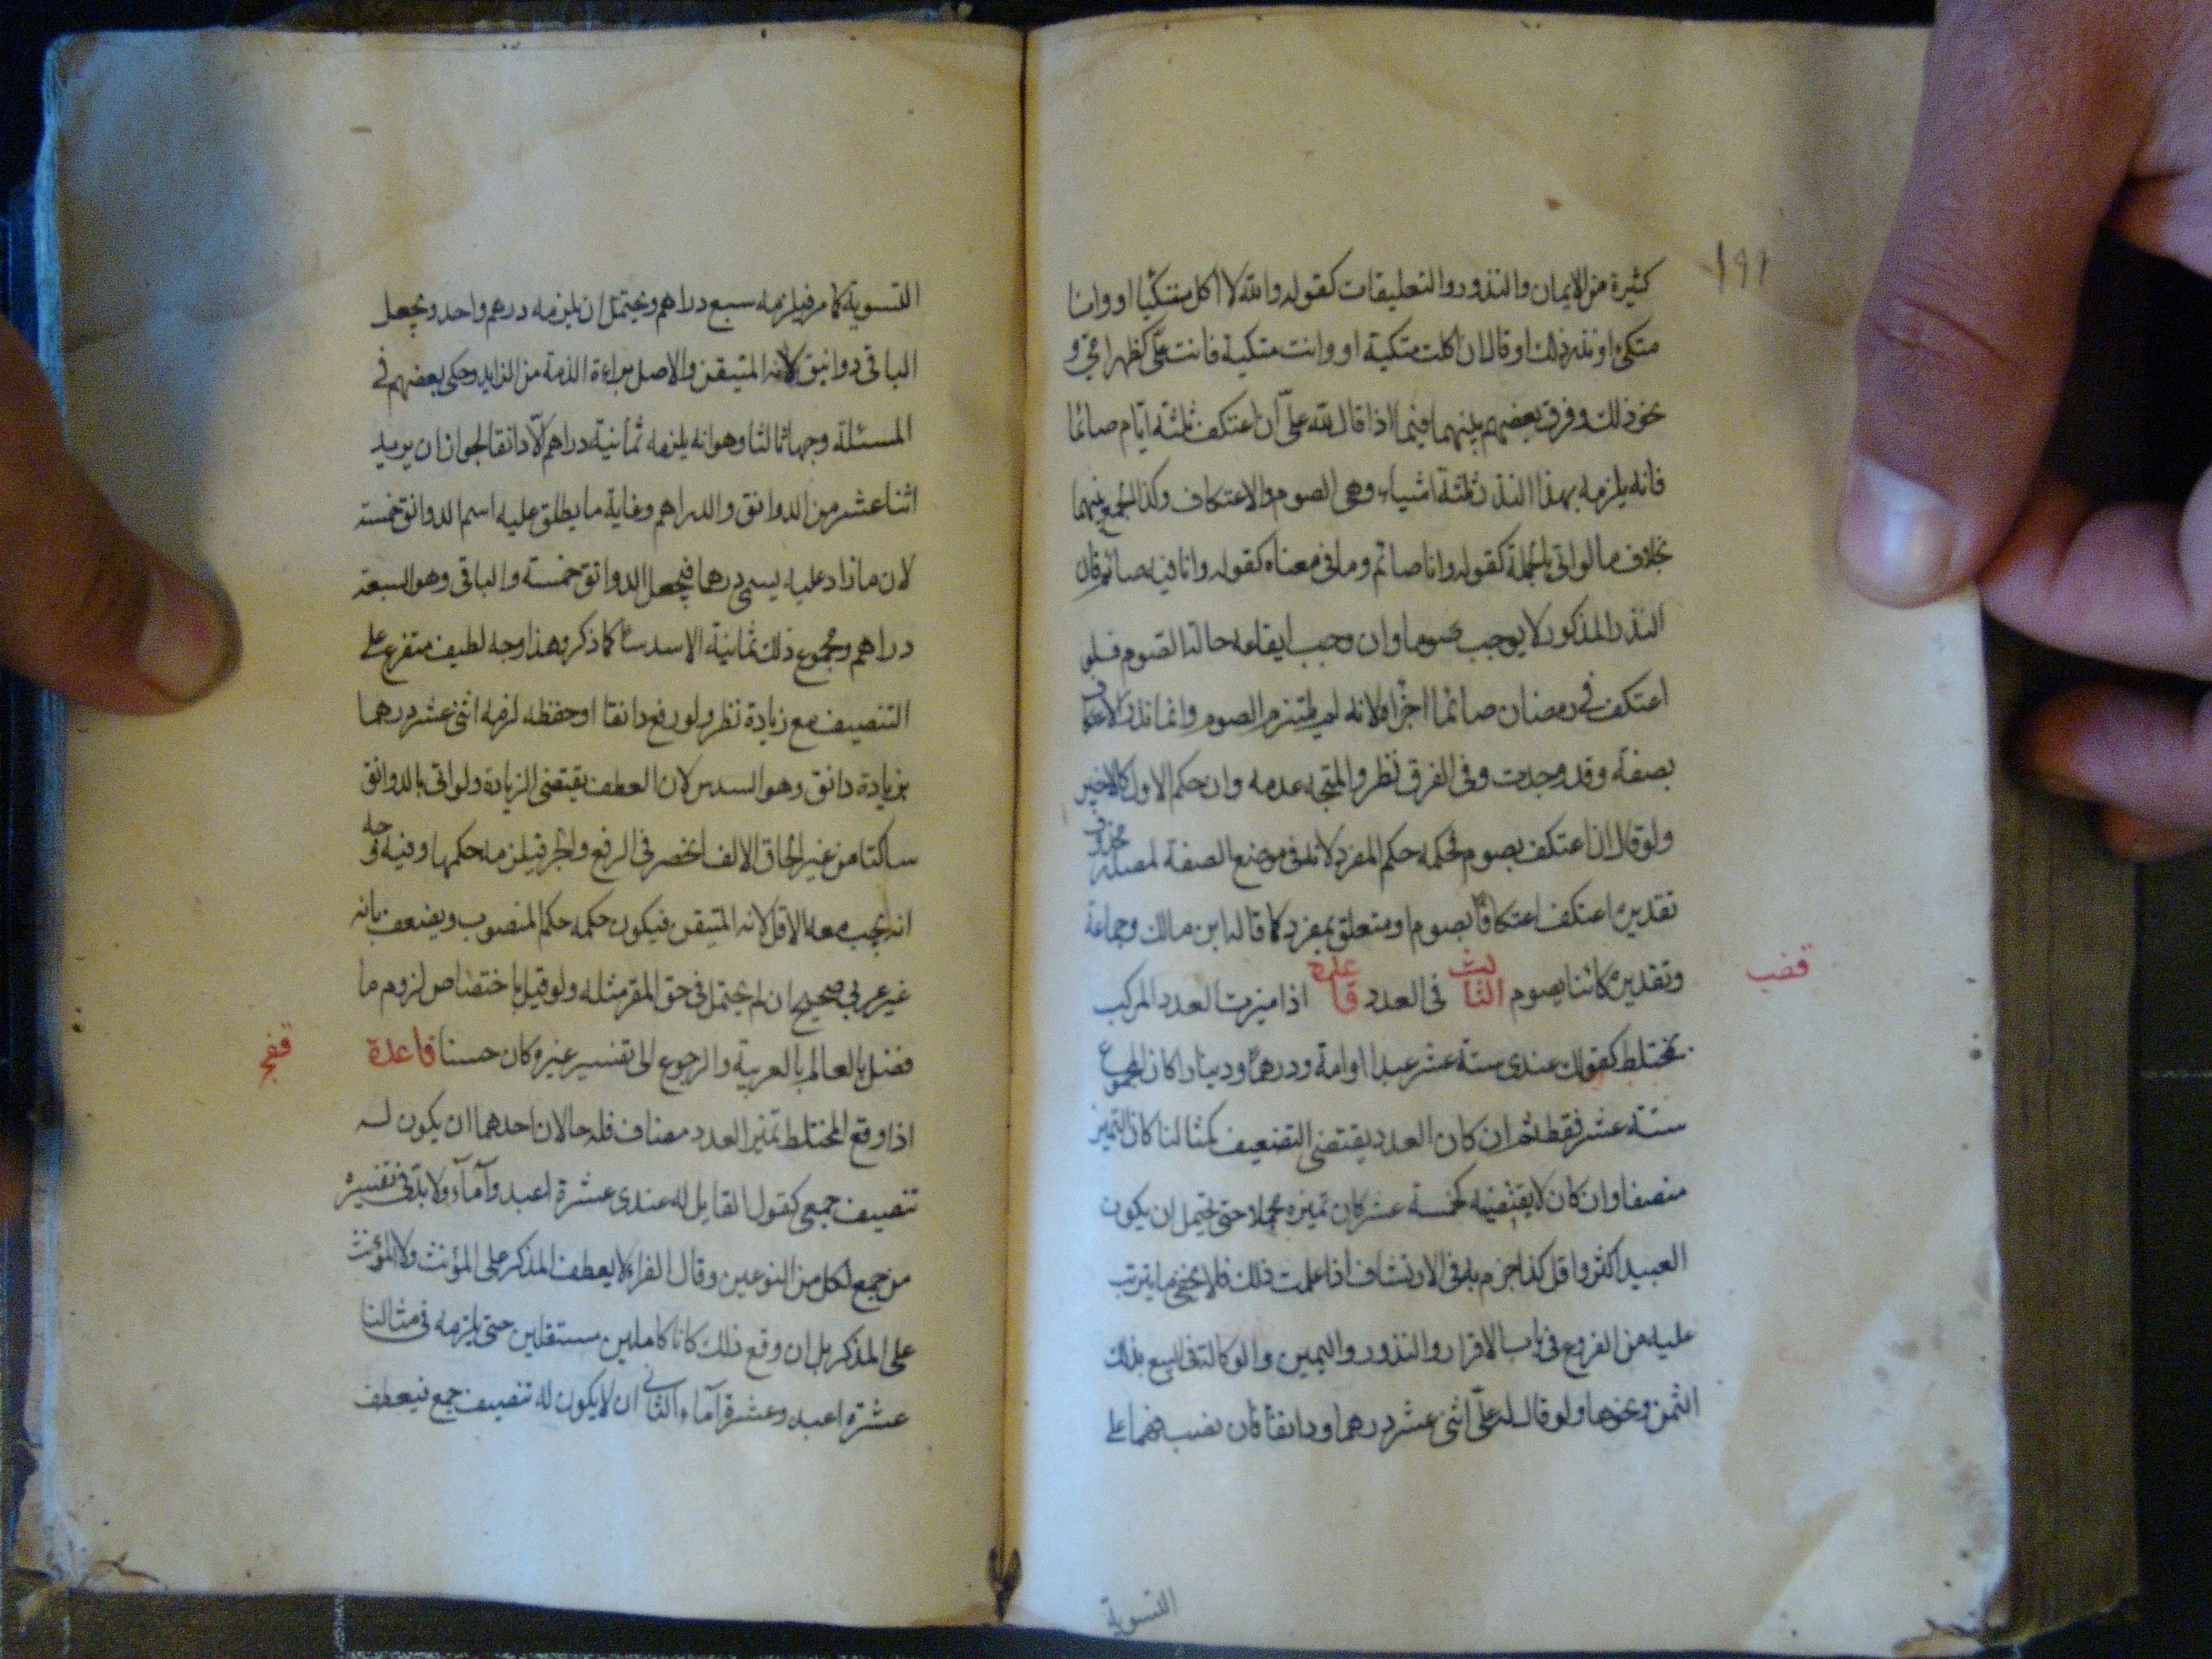 ١٩١
كثيرة من الايمان والنذور والتعليقات كقوله والله لا اكل متكئا او وانا
متكئ او نذر ذلك او قال ان اكلت متكية او وانت متكية فانت علىّ كظهر امى و
نحو ذلك وفرق بعضهم بينهما فيما اذا قال لله علىّ ان اعتكف ثلثة ايام صائما
فانه يلزمه بهذا النذر ثلثة اشياء وهى الصوم والاعتكاف وكذا الجمع بينهما
بخلاف ما لو اتى بالجملة كقوله وانا صائم وما فى معناه كقوله وانا فيه صائم فان
النذر المذكور لا يوجب صوما وان وجب ايقاعه حالة الصوم فلو
اعتكف فى رمضان صائما اجزأه لانه لم يلتزم الصوم وانما نذر الاعتكاف
بصفة وقد وجدت وفى الفرق نظر والمتجه عدمه وان حكم الاول كالاخير
ولو قال ان اعتكف بصوم فحكمه حكم المفرد لانه فى موضع الصفة لمصدر محذوف
تقديره اعتكف اعتكافا بصوم او متعلق بمفرد كما قاله ابن مالك وجماعة
وتقديره كائنا بصوم الثالث فى العدد قاعدة اذا ميزت العدد المركب
قضب
بمختلط كقولك عندى ستة عشر عبدا او امة ودرهما ودينارا كان المجموع
ستة عشر فقط ثم ان كان العدد يقتضى التضعيف كمثالنا كان التميز
منصفا وان كان لا يقتضيه كخمسة عشر كان تميزه مجملا حتى يحتمل ان يكون
العبيد اكثر واقل كذا جزم به فى الارتشاف اذا علمت ذلك فلا يخفى ما يترتب
عليه من الفروع فى باب الاقرار والنذور واليمين والوكالة فى البيع بذلك
الثمن ونحوها ولو قال له علىّ اثنى عشر درهما ودانقا فان نصبهما على
التسوية
التسوية كما مر فيلزمه سبع دراهم ويحتمل ان يلزمه درهم واحد ويجعل
الباقى دوانيق لانه المتيقن والاصل براءة الذمة من الزايد وحكى بعضهم فى
المسئلة وجها ثالثا وهو انه يلزمه ثمانية دراهم الّا دانقا لجواز ان يريد
اثنا عشر من الدوانق والدراهم وغاية ما يطلق عليه اسم الدوانق خمسة
لان ما زاد عليه يسمى درهما فيجعل الدوانق خمسة والباقى وهو السبعة
دراهم ومجموع ذلك ثمانية الا سدسا كما ذكر وهذا وجه لطيف متفرع على
التنصيف مع زيادة نظر ولو رفع دانقا او خفظه لزمه اثنى عشر درهما
بزيادة دانق وهو السدس لان العطف يقتضى الزيادة ولو اتى بالدوانق
ساكتا من غير الحاق الالف انحصر فى الرفع والجر فيلزمه حكمها وفيه وجه قوى
انه يجب معه الاقل لانه المتيقن فيكون حكمه حكم المنصوب ويضعف بانه
غير عربى صحيح ان لم يحتمل فى حق المقر مثله ولو قيل باختصاص لزوم ما
فضل بالعالم بالعربية والرجوع الى تفسير غيره كان حسنا قاعدة
قفج
اذا وقع المختلط تميز العدد مضاف فله حالان احدهما ان يكون له
تنصيف جمعى كقول القايل له عندى عشرة اعبد وآماء ولا بد فى تفسيره
من جمع لكل من النوعين وقال الفراء لا يعطف المذكر على المؤنث ولا المؤنث
على المذكر بل ان وقع ذلك كانا كاملين مستقلين حتى يلزمه فى مثالنا
عشرة اعبد وعشرة آماء الثانى ان لا يكون له تنصيف جمع فيعطف